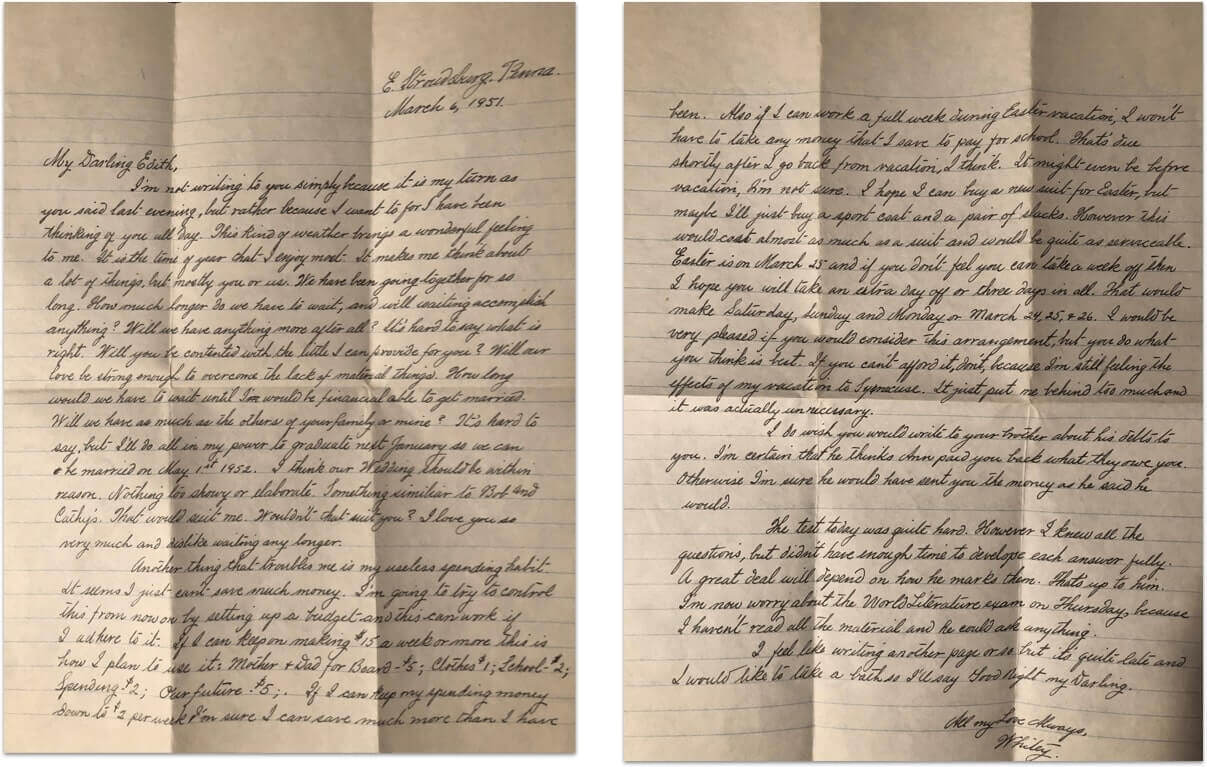 E. Stroudsburg, Penna.
March 6, 1951.
My Darling Edith,
I'm not writing to you simply because it is my turn as
you said last evening, but rather because I want to for I have been
thinking of you all day. This kind of weather brings a wonderful feeling
to me. It is the time of year that I enjoy most. It makes me think about
a lot of things, but mostly you or us. We have been going together for so
long. How much longer do we have to wait, and will waiting accomplish
anything? Will we have anything more after all? It's hard to say what is
right. Will you be contented with the little I can provide for you? Will our
love be strong enough to overcome the lack of material things. How long
would we have to wait until I would be financial able to get married.
Will we have as much as the others of your family or mine? It's hard to
say, but I'll do all in my power to graduate next January so we can
be married on May 1st 1952. I think our Wedding should be within
reason. Nothing too showy or elaborate. Something similiar to Bob and
Cathy's. That would suit me. Wouldn't that suit you? I love you so
very much and dislike waiting any longer.
Another thing that troubles me is my useless spending habit.
It seems I just can't save much money. I'm going to try to control
this from now on by setting up a budget and this can work if
I adhere to it. If I can keep on making $15 a week or more this is
how I plan to use it: Mother & Dad for Board - $5; Clothes $1; School - $2;
Spending $2; Our future $5;. If I can keep my spending money
down to $2 per week I'm sure I can save much more than I have
been. Also if I can work a full week during Easter vacation, I won't
have to take any money that I save to pay for school. That's due
shortly after I go back from vacation, I think. It might even be before
vacation, I'm not sure. I hope I can buy a new suit for Easter, but
maybe I'll just buy a sport coat and a pair of slacks. However this
would cost almost as much as a suit and would be quite as serviceable.
Easter is on March 25 and if you don't feel you can take a week off then
I hope you will take an extra day off or three days in all. That would
make Saturday, Sunday and Monday or March 24, 25, & 26. I would be
very pleased if you would consider this arrangement, but you do what
you think is best. If you can't afford it, don't, because I'm still feeling the
effects of my vacation to Syracuse. It just put me behind too much and
it was actually unnecessary.
I do wish you would write to your brother about his debts to
you. I'm certain that he thinks Ann paid you back what they owe you.
Otherwise I'm sure he would have sent you the money as he said he
would.
The test today was quite hard. However I knew all the
questions, but didn't have enough time to develope each answer fully.
A great deal will depend on how he marks them. That's up to him.
I'm now worry about the World Literature exam on Thursday, because
I haven't read all the material and he could ask anything.
I feel like writing another page or so but it's quite late and
I would like to take a bath so I'll say Good Night my Darling.
All my Love Always,
Whitey.